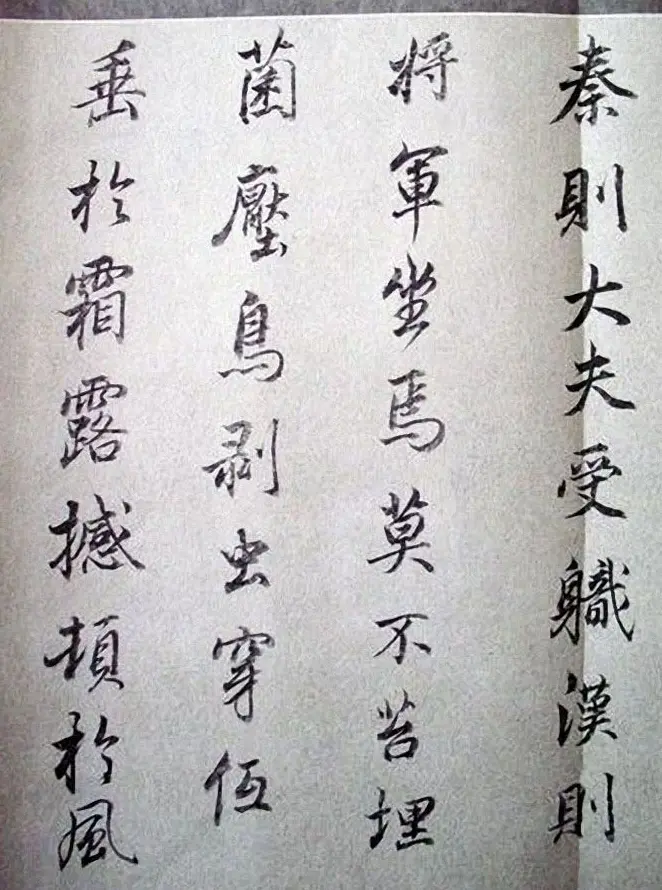 秦則大夫受軄漢則
将軍坐焉莫不苔埋
菌壓鳥剥虫穿低
垂於霜露撼頓於風